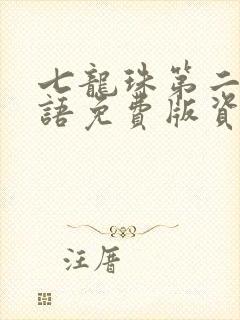 七龍珠第二
語免費版資
汪厝